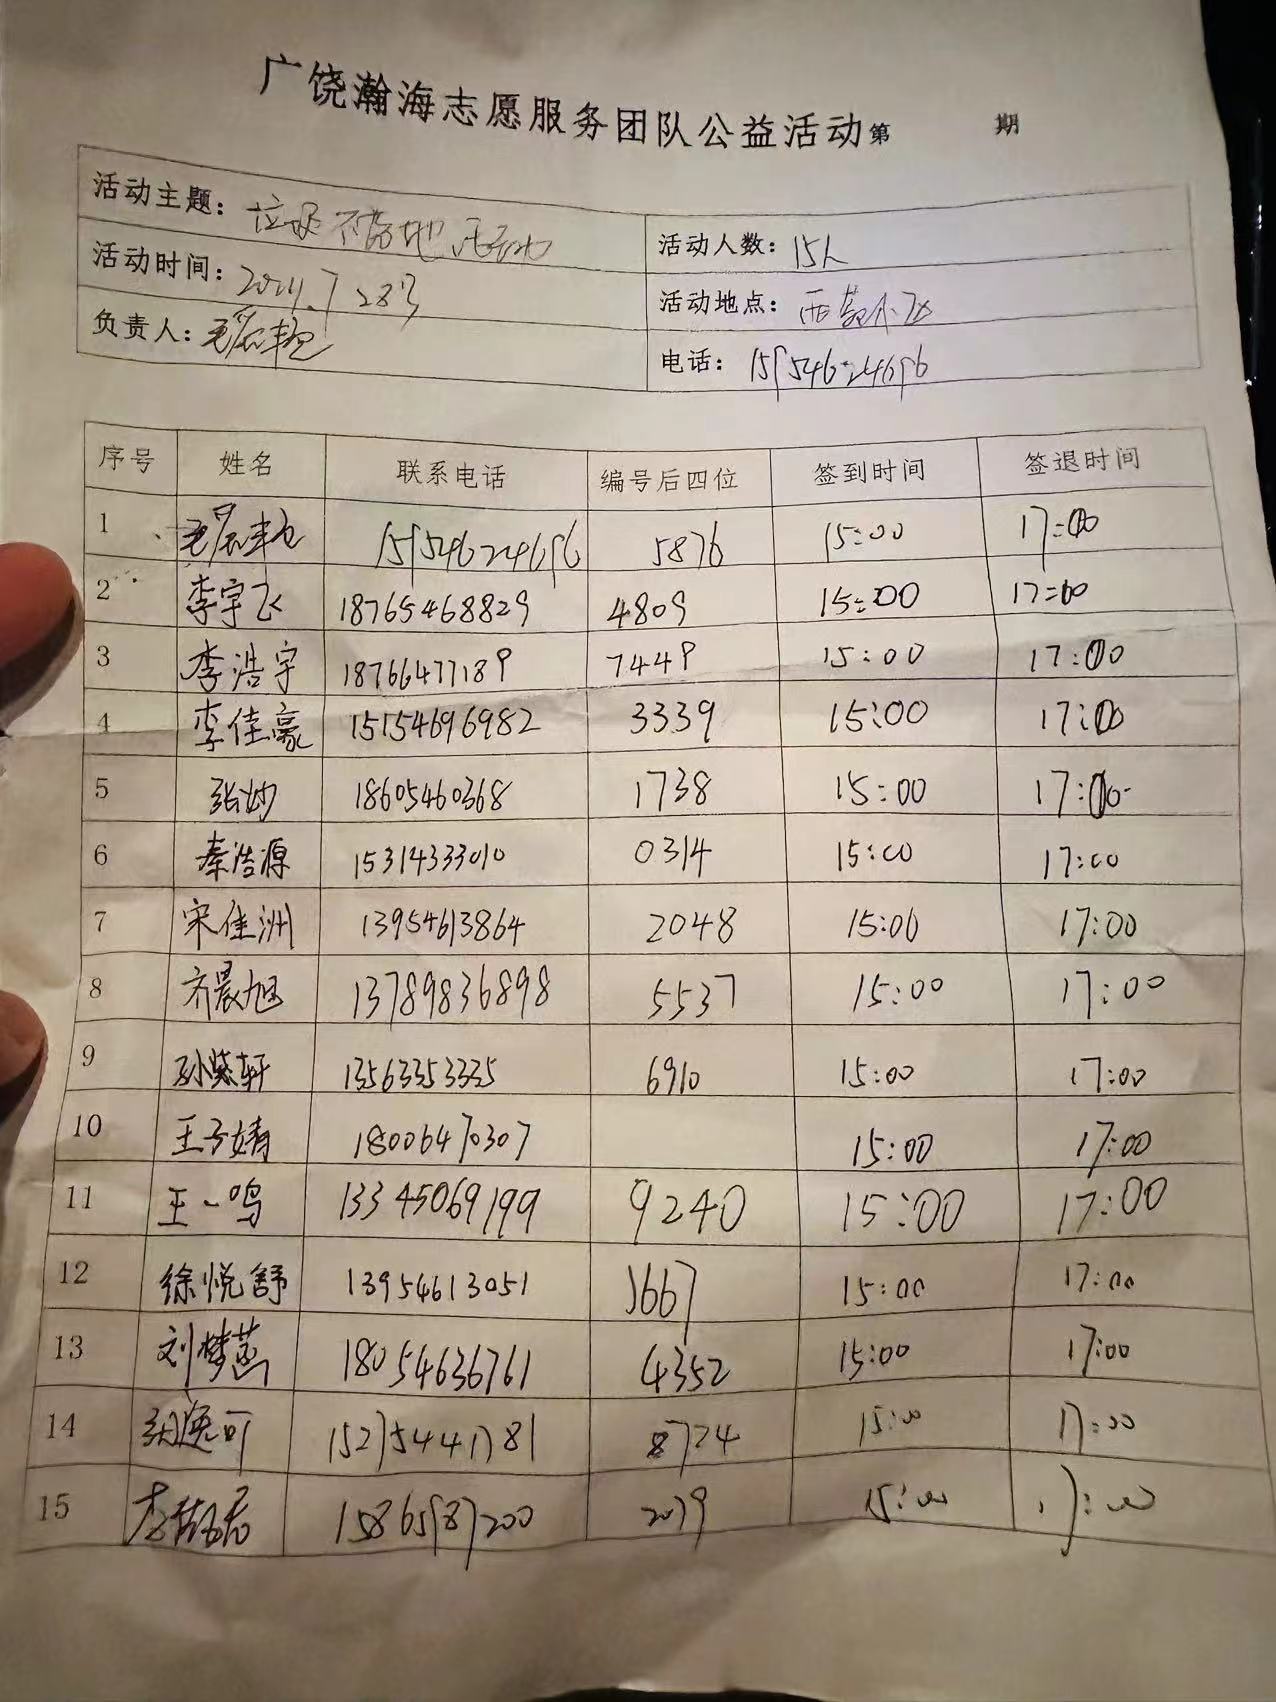 广饶瀚海志愿服务团队公益活动第 期
活动主题：垃圾不落地活动 活动人数：15人
活动时间：2021.7.28号 活动地点：
负责人： 电话：15954624696
序号 姓名 联系电话 编号后四位 签到时间 签退时间
1 15954624696 5876 15:00 17:00
2 李宇飞 18765468829 4809 15:00 17:00
3 李浩宇 18766477189 7449 15:00 17:00
4 李佳豪 15154696982 3339 15:00 17:00
5 张妙 18605460368 1738 15:00 17:00
6 秦浩源 15314333010 0314 15:00 17:00
7 宋佳洲 13954613864 2048 15:00 17:00
8 齐晨旭 13789836898 5537 15:00 17:00
9 孙紫轩 13563353335 6910 15:00 17:00
10 王子婧 18006470307 15:00 17:00
11 王一鸣 13345069199 9240 15:00 17:00
12 徐悦舒 13954613051 1667 15:00 17:00
13 刘梦菡 18054636761 4352 15:00 17:00
14 可 15275441781 8724 15:00 17:00
15 李 15865987200 2079 15:00 17:00